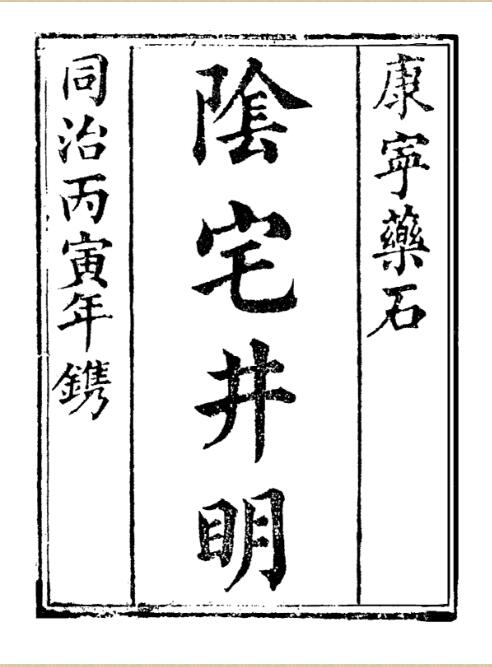 康寧藥石
陰宅井明
同治丙寅年鐫